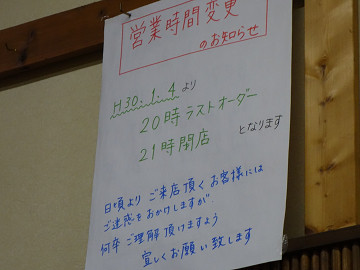 営業時間変更
のお知らせ
H30.1.4 より
20時ラストオーダー
21時閉店
となります
日頃より ご来店頂くお客様には
ご迷惑をおかけしますが
何卒 ご理解頂けますよう
宜しくお願い致します